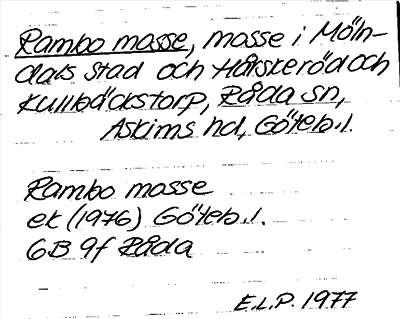 Rambo mosse, mosse i Möln-
dals stad och Hårskeröd och
Kullbäckstorp, Råda sn,
Askims hd, Göteb. l.
Rambo mosse
ek (1976) Göteb. l.
6B 9f Råda
E.L.P. 1977